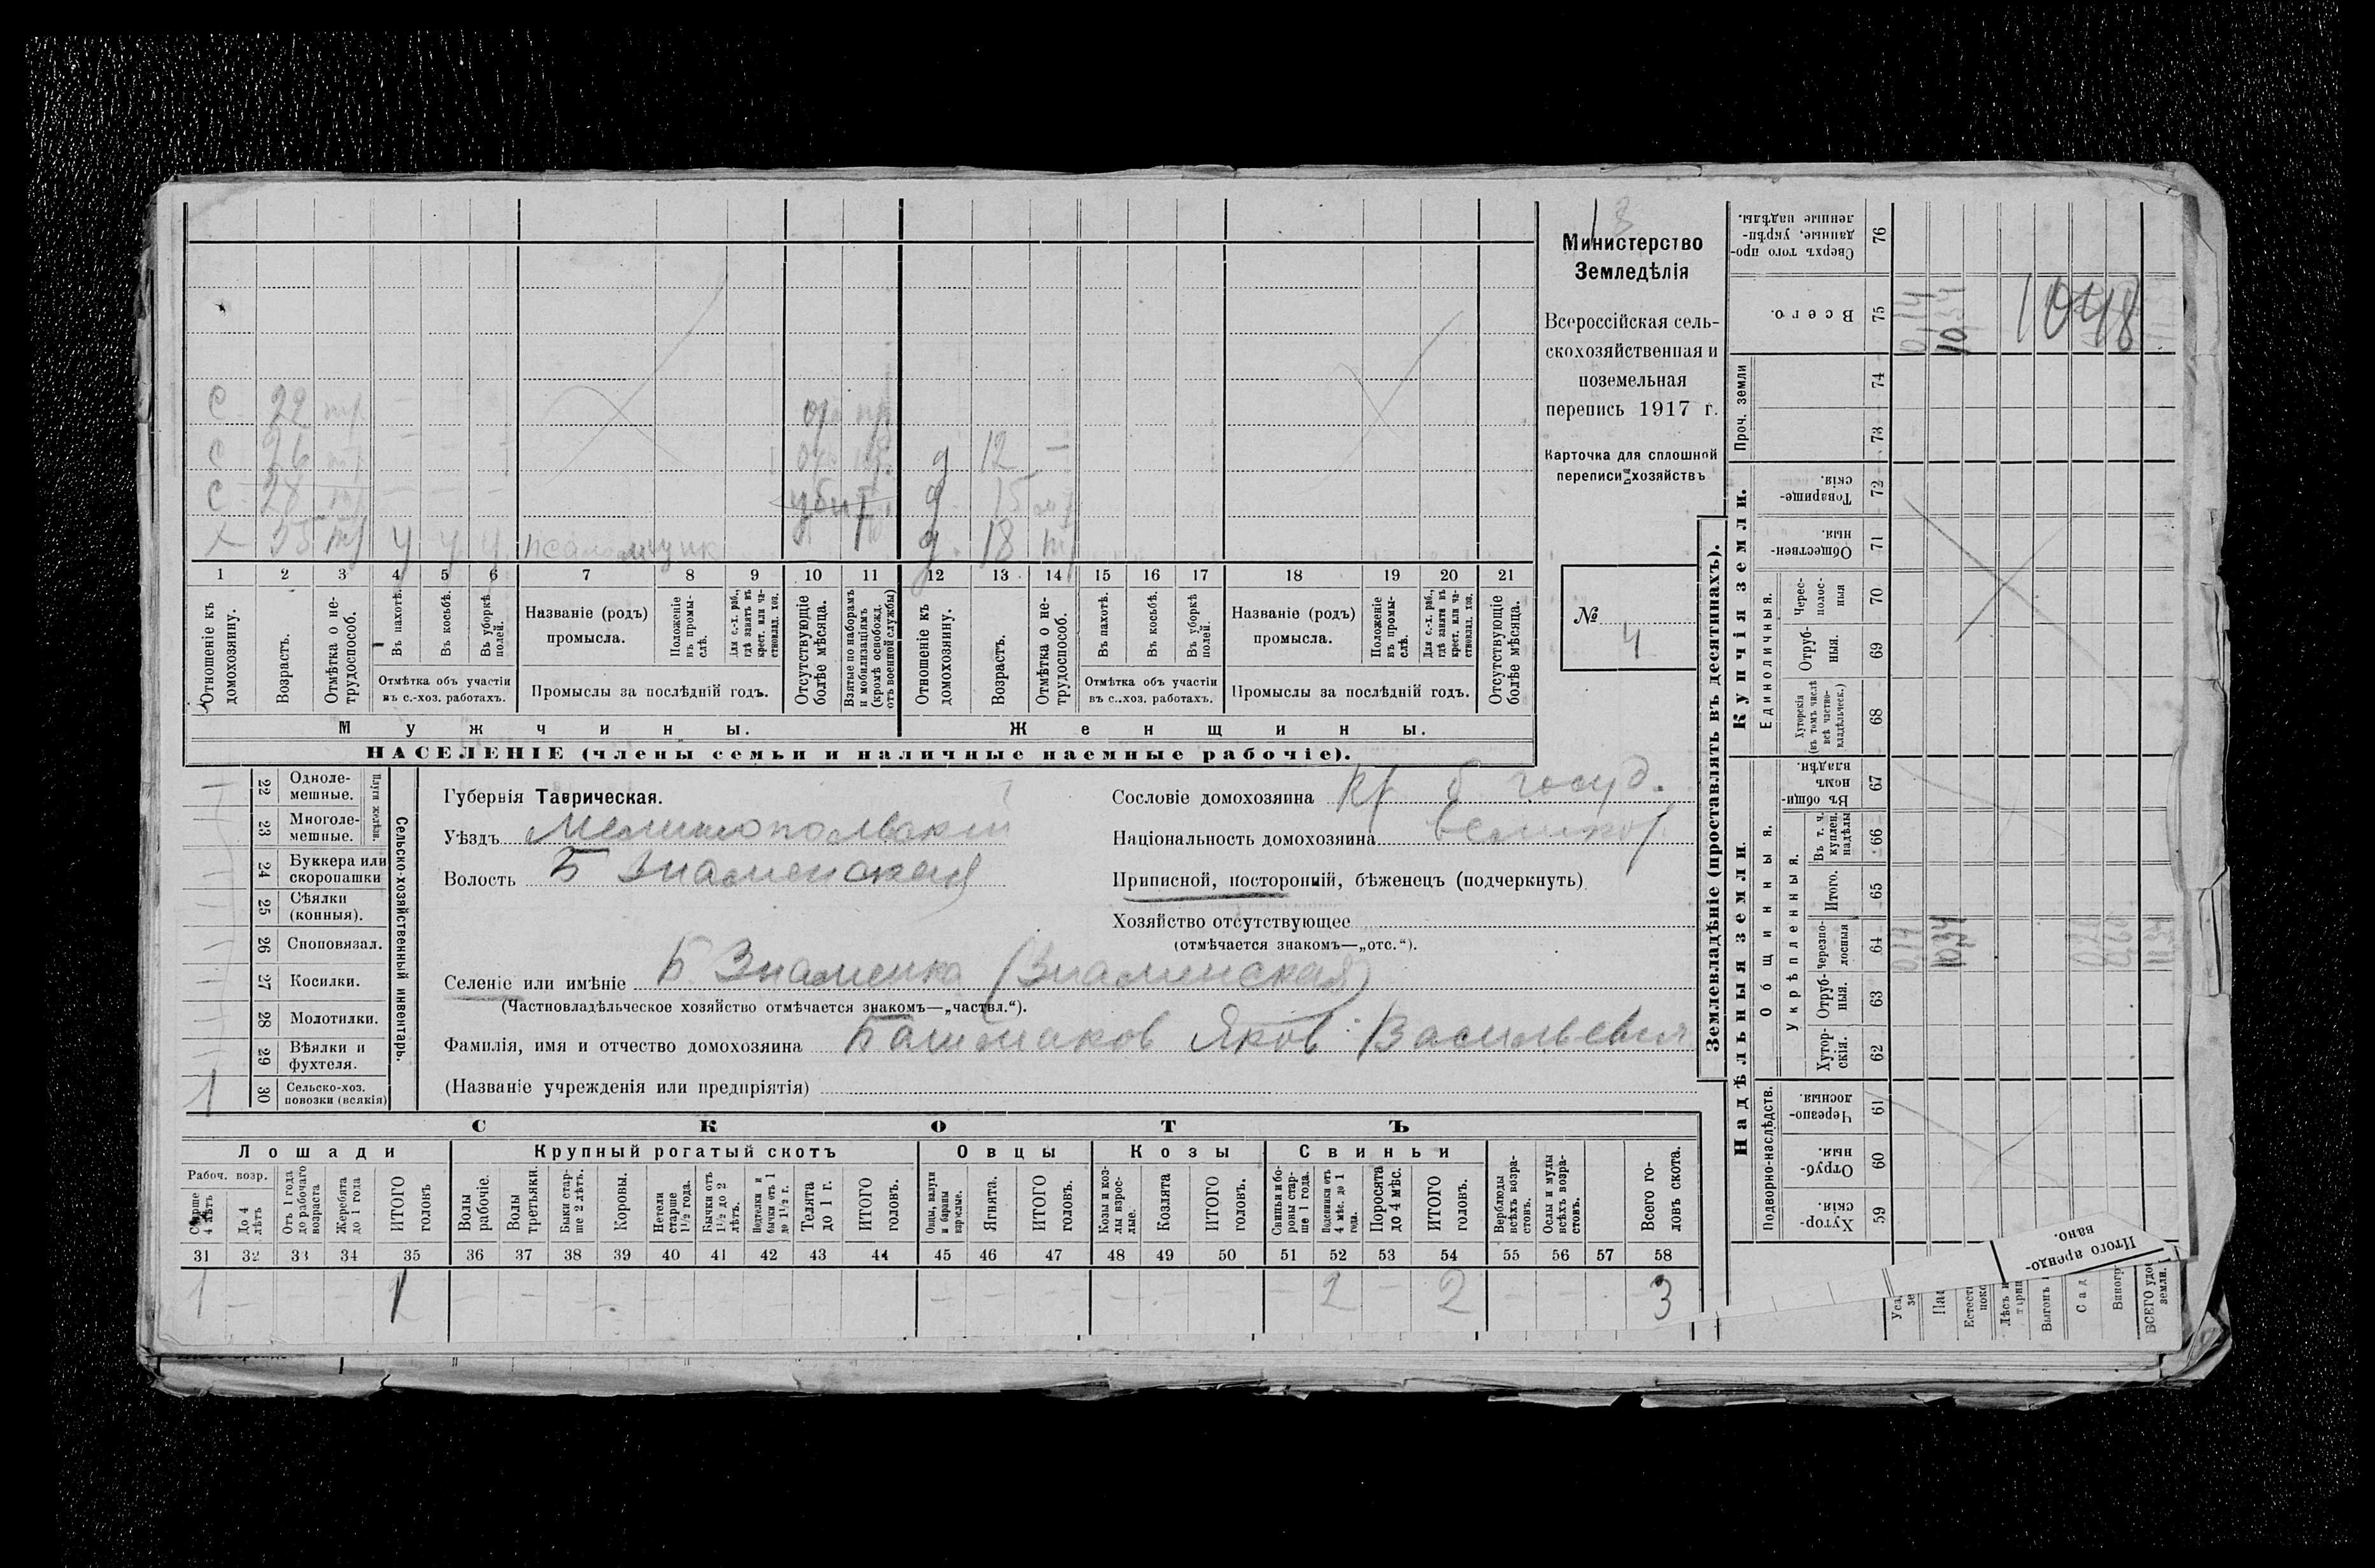 18
Министерство
Земледѣлія
Всероссійская сель-
скохозяйственная и
поземельная
перепись 1917 г.
Карточка для сплошной
переписи хозяйствъ
№ 4
С 22 тр
С 26 тр
С 28 убит
Х 55 тр ч ч ч псаломщик
д 12 —
д 15
д 18 тр
1 2 3 4 5 6 7 8 9 10 11 12 13 14 15 16 17 18 19 20 21
Отношеніе къ домохозяину.
Возрастъ.
Отмѣтка о не-трудоспособ.
Въ пахотѣ.
Въ косьбѣ.
Въ уборкѣ полей.
Отмѣтка объ участіи
въ с.-хоз. работахъ.
Названіе (родъ)
промысла.
Положеніе въ промы-слѣ.
Для с.-х. раб., гдѣ занятъ въ крест. или ча-стновлад. хоз.
Промыслы за послѣдній годъ.
Отсутствующіе болѣе мѣсяца.
Взятые по наборамъ и мобилизаціямъ (кромѣ освобожд. отъ военной службы)
Отношеніе къ домохозяину.
Возрастъ.
Отмѣтка о не-трудоспособ.
Въ пахотѣ.
Въ косьбѣ.
Въ уборкѣ полей.
Отмѣтка объ участіи
въ с..хоз. работахъ.
Названіе (родъ)
промысла.
Положеніе въ промы-слѣ.
Для с.-х. раб., гдѣ занятъ въ крест. или ча-стновлад. хоз.
Промыслы за послѣдній годъ.
Отсутствующіе болѣе мѣсяца.
Мужчины. Женщины.
НАСЕЛЕНІЕ (члены семьи и наличные наемные рабочіе).
22 Одноле-мешные.
23 Многоле-мешные.
Плуги желѣзн.
24 Буккера или скоропашки
25 Сѣялки (конныя).
26 Сноповязал.
27 Косилки.
28 Молотилки.
29 Вѣялки и фухтеля.
1 30 Сельско-хоз. повозки (всякія)
Сельско-хозяйственный инвентарь.
Губернія Таврическая.
Уѣздъ Мелитопольскій
Волость Б Знаменская
Селеніе или имѣніе Б. Знаменка (Знаменская)
(Частновладѣльческое хозяйство отмѣчается знакомъ—„частвл.“).
Фамилія, имя и отчество домохозяина Башмаков Яков Васильевич
(Названіе учрежденія или предпріятія)
Сословіе домохозяина кр б госуд.
Національность домохозяина великор
Приписной, посторонній, бѣженецъ (подчеркнуть)
Хозяйство отсутствующее
(отмѣчается знакомъ—„отс.“).
СКОТЪ
Лошади
Рабоч. возр.
Старше 4 лѣтъ
До 4 лѣтъ
Отъ 1 года до рабочаго возраста
Жеребята до 1 года
ИТОГО головъ
Крупный рогатый скотъ
Волы рабочіе.
Волы третьяки.
Быки стар-ше 2 лѣтъ.
Коровы.
Нетели старше 1½ года.
Бычки отъ 1½ до 2 лѣтъ.
Подтелки и бычки отъ 1 до 1½ г.
Телята до 1 г.
ИТОГО головъ.
Овцы
Овцы, валухи и бараны взрослые.
Ягнята.
ИТОГО головъ.
Козы
Козы и коз-лы взрос-лые.
Козлята
ИТОГО головъ.
Свиньи
Свиньи и бо-ровы стар-ше 1 года.
Подсвинки отъ 4 мѣс. до 1 года.
Поросята до 4 мѣс.
ИТОГО головъ.
Верблюды всѣхъ возра-стовъ.
Ослы и мулы всѣхъ возра-стовъ.
Всего го-ловъ скота.
31 32 33 34 35 36 37 38 39 40 41 42 43 44 45 46 47 48 49 50 51 52 53 54 55 56 57 58
1 — — — 1 — 2 — 2 — — 3
Землевладѣніе (проставлять въ десятинахъ).
Купчія земли.
Надѣльныя земли.
Сверхъ того про-данные, укрѣп-ленные надѣлы. 76
Всего. 75 10 1048
Проч. земли 74 73
Товарище-скія. 72
Обществен-ныя. 71
Единоличныя.
Черес-полос-ныя 70
Отруб-ныя. 69
Хуторскія (въ томъ числѣ всѣ частно-владѣльческ.) 68
Общинныя.
Въ общи-номъ владѣн. 67
Укрѣпленныя.
Въ т. ч. куплен. надѣлы 66
Итого. 65
Черезпо-лосныя 64
Отруб-ныя. 63
Хутор-скія. 62
Подворно-наслѣдств.
Черезпо-лосныя. 61
Отруб-ныя. 60
Хутор-скія. 59
Итого арендо-вано.
Выгонъ
Сад
Виногр
ВСЕГО удо земли.